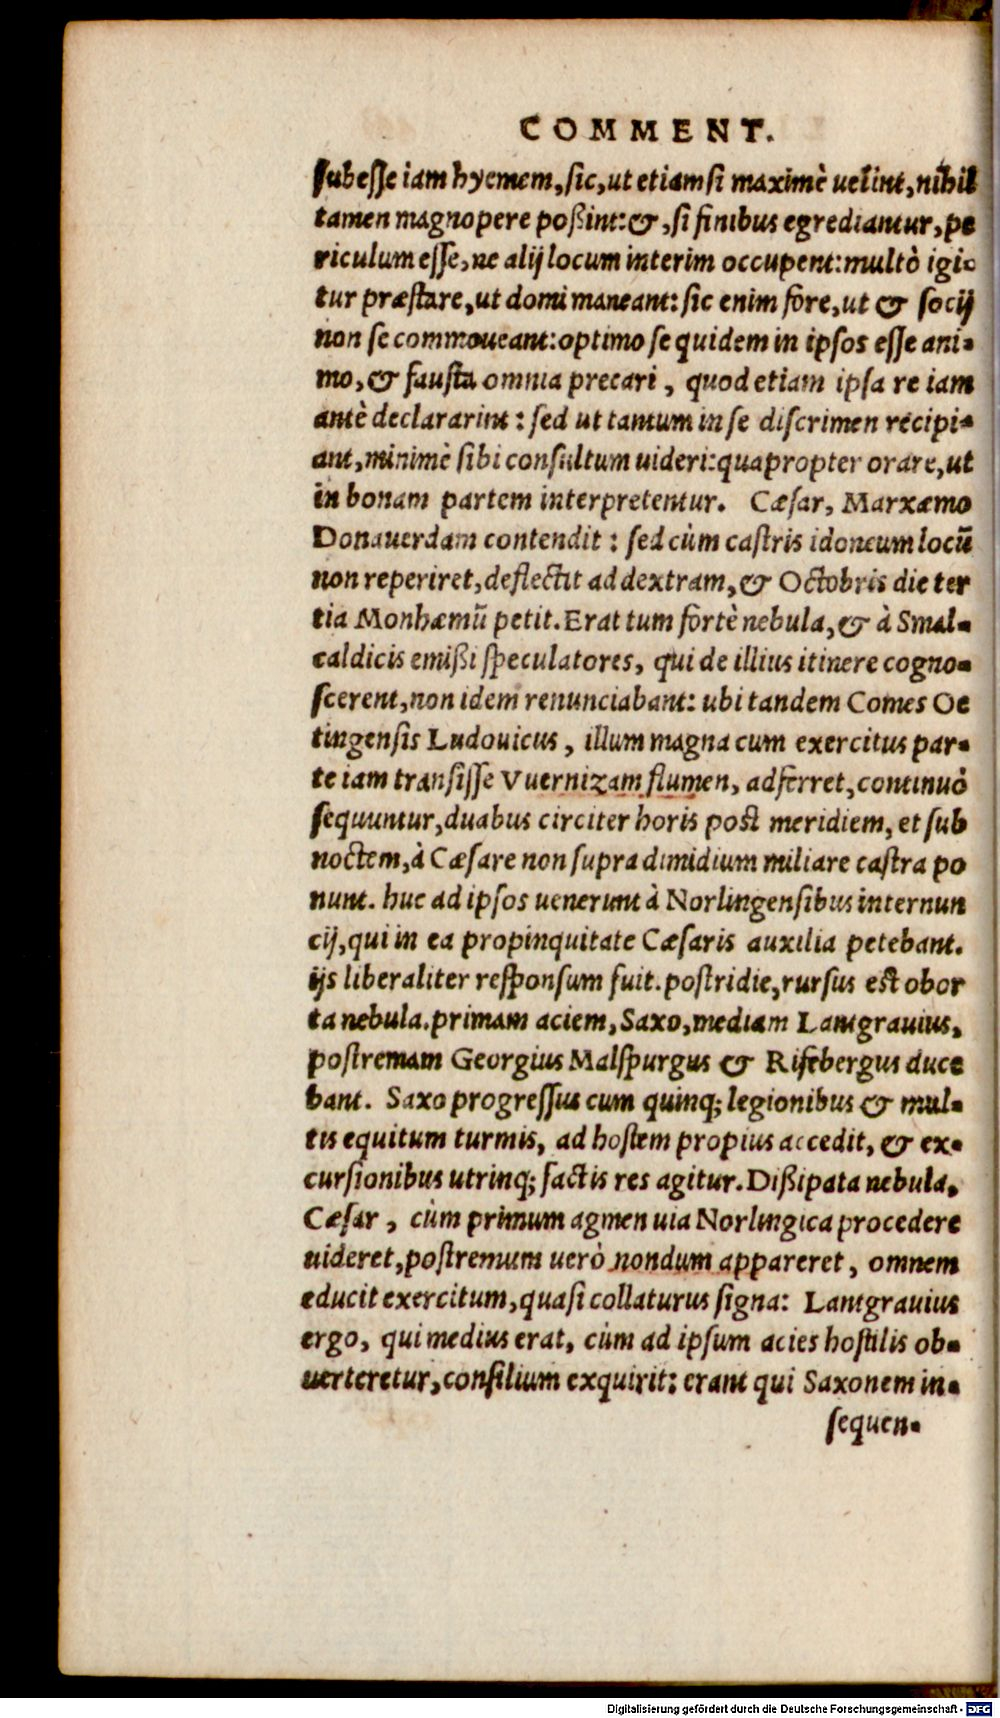 COMMENT.
subesse iam hyemem, sic, ut etiamsi maximè uelint, nihil
tamen magnopere poßint: &, si finibus egrediantur, pe
riculum esse, ne alij locum interim occupent: multò igi-
tur præstare, ut domi maneant: sic enim fore, ut & socij
non se commoueant: optimo se quidem in ipsos esse ani-
mo, & fausta omnia precari, quod etiam ipsa re iam
antè declararint: sed ut tantum in se discrimen recipi-
ant, minimè sibi consultum uideri: quapropter orare, ut
in bonam partem interpretentur. Cæsar, Marxæmo
Donauerdam contendit: sed cùm castris idoneum locũ
non reperiret, deflectit ad dextram, & Octobris die ter
tia Monhæmũ petit. Erat tum fortè nebula, & à Smal-
caldicis emißi speculatores, qui de illius itinere cogno-
scerent, non idem renunciabant: ubi tandem Comes Oe
tingensis Ludouicus, illum magna cum exercitus par-
te iam transisse Vuernizam flumen, adferret, continuò
sequuntur, duabus circiter horis post meridiem, et sub
noctem, à Cæsare non supra dimidium miliare castra po
nunt. huc ad ipsos uenerunt à Norlingensibus internun
cij, qui in ea propinquitate Cæsaris auxilia petebant.
ijs liberaliter responsum fuit. postridie, rursus est obor
ta nebula. primam aciem, Saxo, mediam Lantgrauius,
postremam Georgius Malspurgus & Rifebergus duce
bant. Saxo progressus cum quinq; legionibus & mul-
tis equitum turmis, ad hostem propius accedit, & ex-
cursionibus utrinq; factis res agitur. Dißipata nebula,
Cæsar, cùm primum agmen uia Norlingica procedere
uideret, postremum uerò nondum appareret, omnem
educit exercitum, quasi collaturus signa: Lantgrauius
ergo, qui medius erat, cùm ad ipsum acies hostilis ob-
uerteretur, consilium exquirit: erant qui Saxonem in-
sequen-
Digitalisierung gefördert durch die Deutsche Forschungsgemeinschaft - DFG